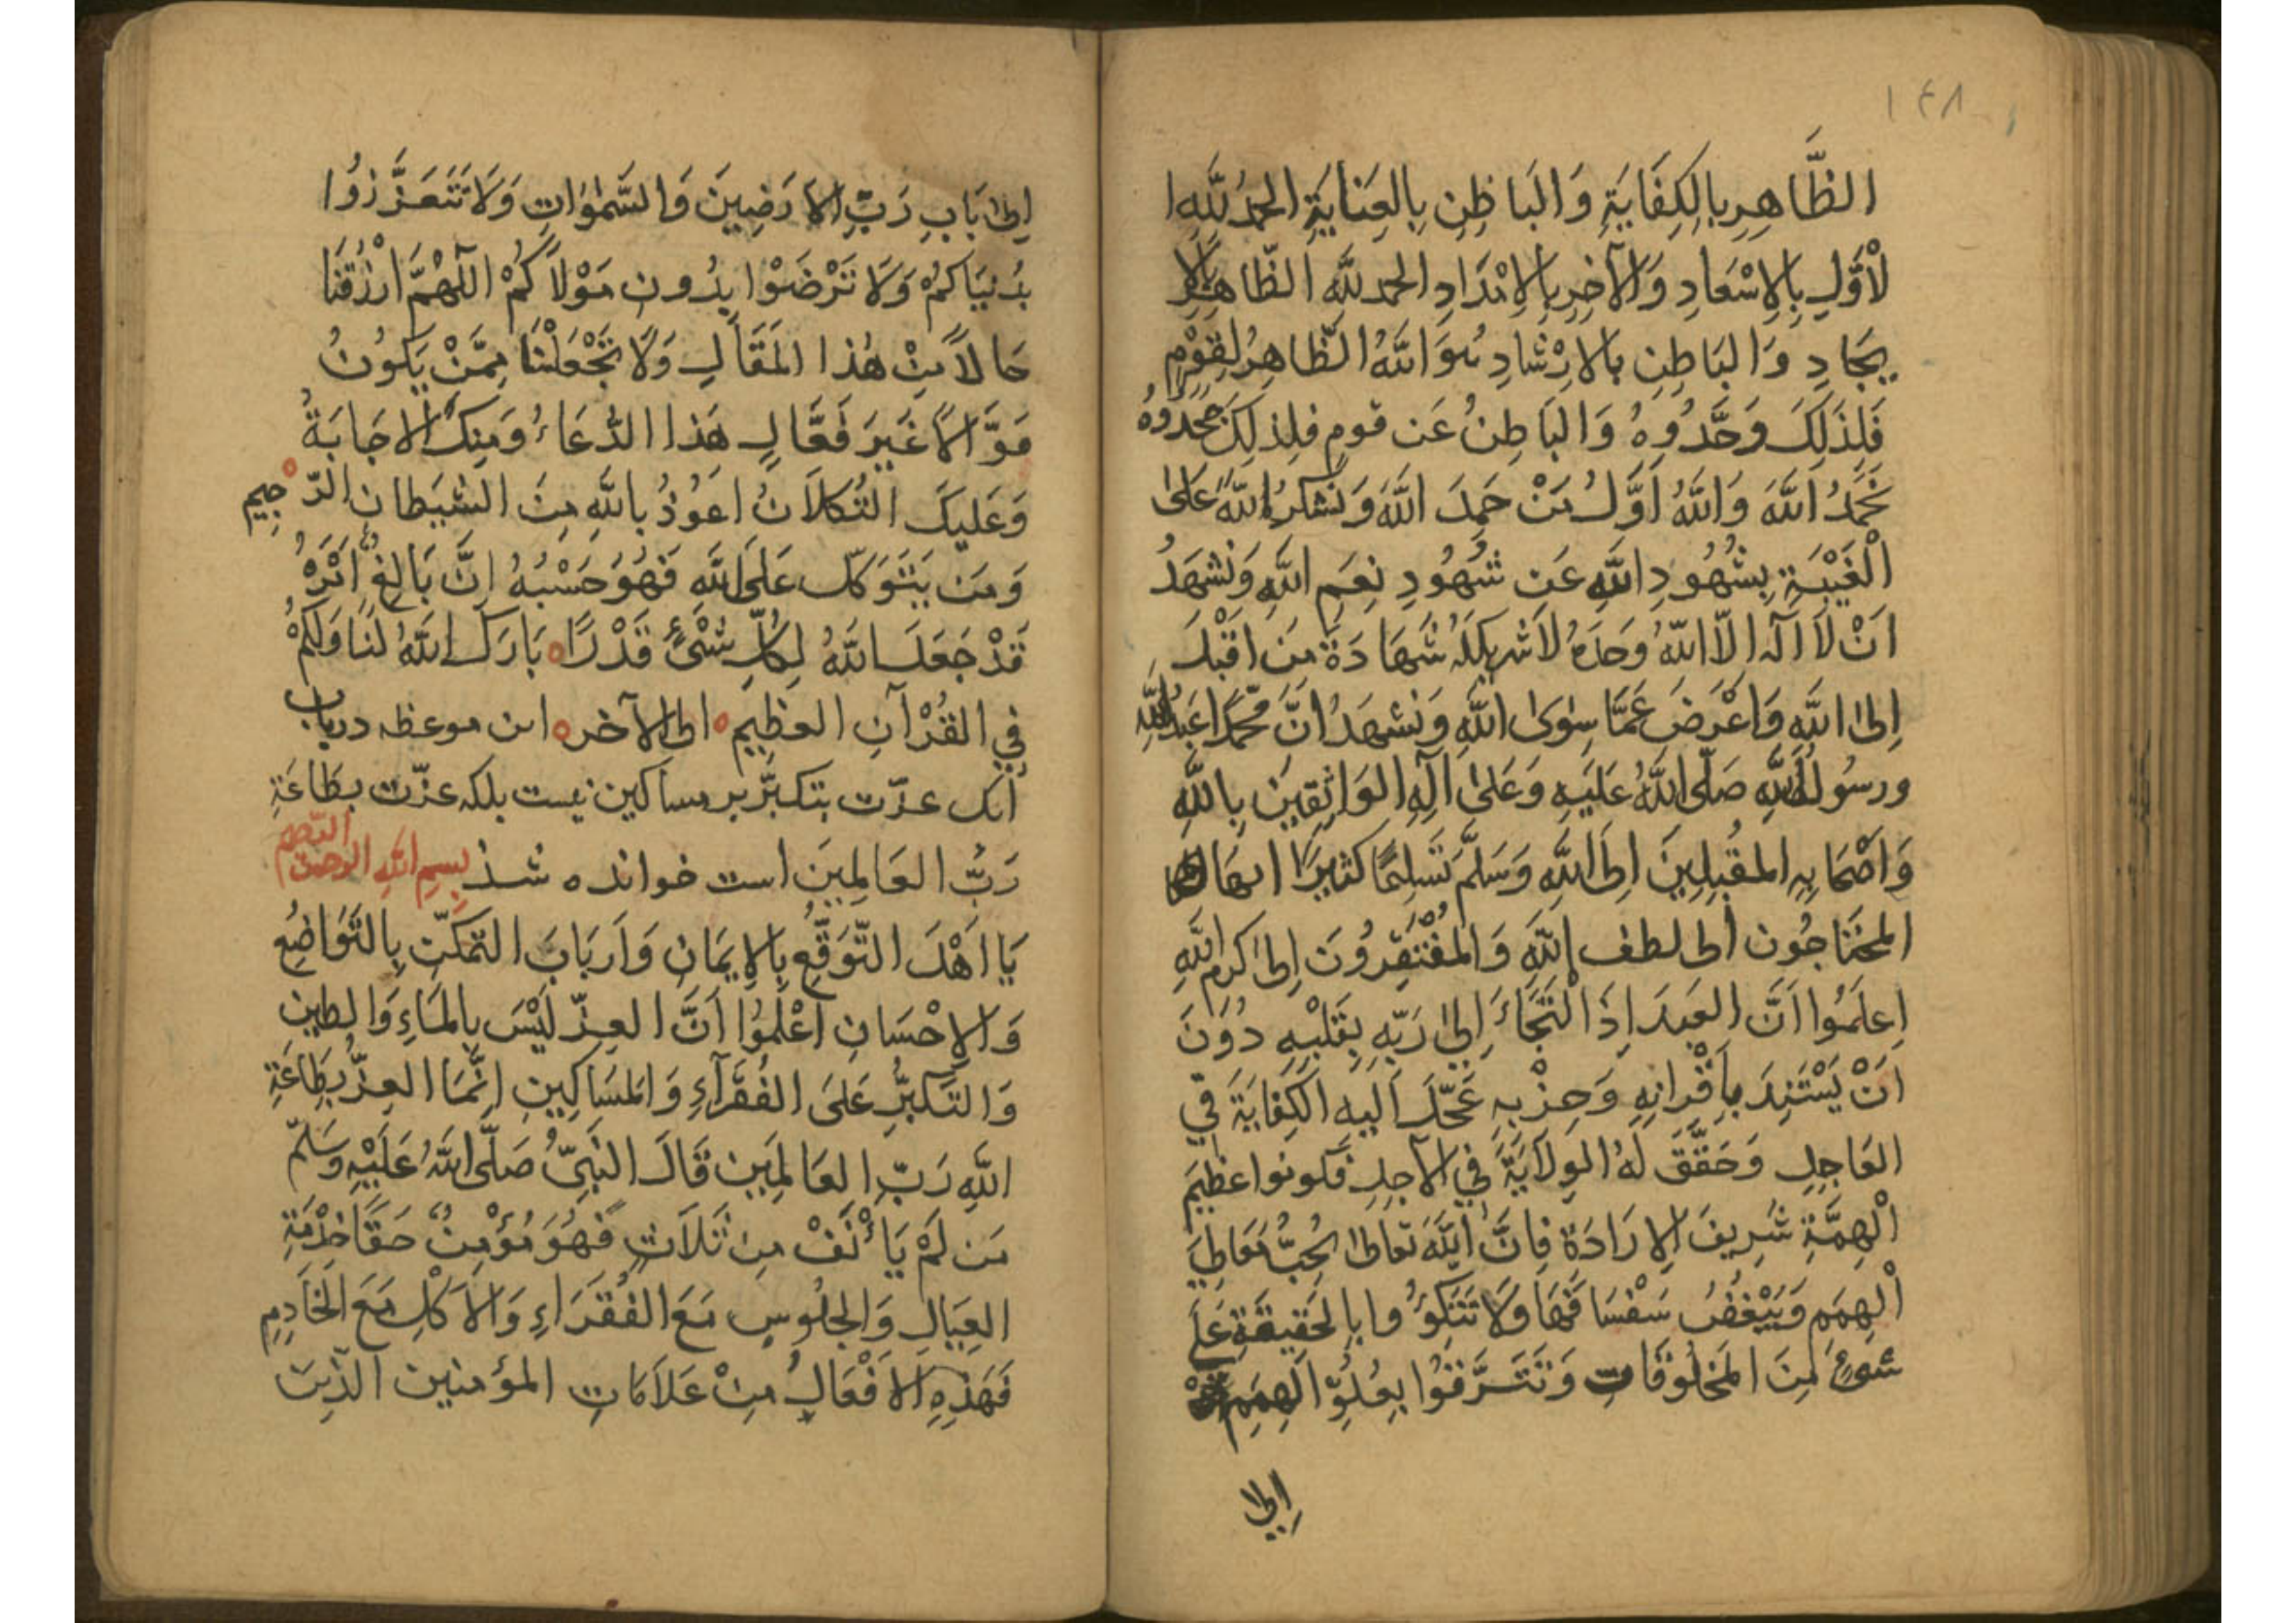 ١٤٨
الظَّاهِرِ بِالكِفَايَةِ وَالبَاطِنِ بِالعِنَايَةِ الحمدُ لِلّهِ ا
لْأَوَّلِ بِالإِسْعَادِ وَالآخِرِ بِالإِمْدَادِ الحمد للّٰه الظّاهِرِ بِالاِ
يجَادِ وَالبَاطِنِ بالاِرْشادِ هُوَ اللّهُ الظّاهِرُ لِقَوْمٍ
فَلِذَلِكَ وَحَّدُوهُ وَالبَاطِنُ عَن قومٍ فلِذلِكَ جَحَدُوهُ
نَحْمَدُ اللّهَ وَاللّهُ اَوَّلُ مَنْ حَمِدَ اللّهَ وَنَشكرُ اللّهَ عَلىٰ
الْغَيْبَةِ بِشُهُودِ اللّهِ عَن شُهُودِ نِعَمِ اللّهِ وَنَشهَدُ
اَنْ لَا اِلٓهَ اِلّا اللّهُ وَحدَهُ لَا شَرِيكَ لَهُ شَهَادَةَ مَن اَقْبَلَ
اِلىٰ اللّهِ وَاَعْرَضَ عَمَّا سِوَى اللّهِ وَنَشهَدُ اَنَّ مُحَمَّدًا عَبدُ اللّهِ
ورسُولُ اللّهِ صَلّى اللّهُ عَلَيهِ وَعَلىٰ آلِهِ الوَاثِقِينَ بِاللّهِ
وَاَصْحَابِهِ المُقبِلِينَ اِلَى اللّهِ وَسَلَّمَ تَسلِيمًا كثِيرًا ايهَا
المحتَاجُون الى لطف اللّهِ وَالمُفْتَقِرُونَ اِلىٰ كرمِ اللّهِ
اِعلَمُوا اَنَّ العَبدَ اِذَا الْتَجَاءَ اِلىٰ رَبِّهِ بِقَلْبِهِ دُوْنَ
اَنْ يَسْتَنِدَ بِاَقْرانِهِ وَحِزْبِهِ عَجّلَ اِليهِ الكِفَايَةَ فِي
العَاجِلِ وَحَقَّقَ لَهُ الوِلَايَةَ فِي الآجِلِ فكونوا عظِيمَ
الْهِمَّةِ شَرِيفَ الاِرَادَةِ فَاِنَّ اللّهَ تعالىٰ يُحِبُّ مَعَالِيَ
الْهِمَمِ وَيَبْغضُ سَفْسَافَهَا وَلَا تَتّكِؤُوا بِالحَقِيقَةِ عَلَى
شَيءٍ مِنَ المَخلُوقَاتِ وَتَتَرَقَّوْا بِعُلُوِّ الهِمَمِ
اِلىٰ
اِلىٰ بَابِ رَبِّ الاَرَضِينَ وَالسَّمٰوَاتِ وَلَا تَتَعَزَّزُوا
بِدُنيَاكُمْ وَلَا تَرْضَوْا بِدُونِ مَوْلَاكُمْ اَللّهُمَّ ارْزُقْنَا
حَالًا مِنْ هٰذا المَقَالِ وَلَا تَجْعَلْنَا مِمَّنْ يَكُونُ
قَوَّالًا غَيرَ فَعَّالٍ هَذا الدُّعَاءُ وَمِنكَ الاِجَابَةُ
وَعَلَيكَ التُّكلَانُ اَعُوْذُ بِاللّهِ مِنَ الشيطانِ الرّجِيمِ
وَمَن يَتَوَكّل عَلَى اللّهِ فَهُوَ حَسْبُهُ اِنَّ بَالِغُ اَمْرِهُ
قَدْ جَعَلَ اللّهُ لِكُلِّ شَيْءٍ قَدْرًا بَارَكَ اللّهُ لَنَا وَلَكُمْ
فِي القُرْآنِ العَظِيمِ الى الآخره اىن موعظه درباب
آنك عزّت بتكبّر بر مساكين نيست بلكه عزّت بطَاعَةِ
رَبُّ العَالَمِينَ است خوانده شذ بسم اللّٰه الرحمن الرّحيم
يَا اَهْلَ التَّوَقُّعِ بِالاِيمَانِ وَاَربَابَ التّمكّن بِالتَّوَاضُعِ
وَالاِحْسَانِ اَعْلَمُوا اَنَّ العِزّ لَيْسَ بِالمَاءِ وَالطِينِ
وَالتَّكبُّرِ عَلَى الفُقَرآءِ وَالمَسَاكِينِ اِنَّمَا العِزُّ بِطَاعَةِ
اللّهِ رَبّ العَالَمِين قَالَ النَّبِيُّ صَلَّى اللّهُ عَلَيْهِ وسَلّمَ
مَن لَمْ يَأْنَفْ مِن ثَلَاثٍ فَهُوَ مُؤْمِنٌ حَقًّا خِدْمَةِ
العِيَالِ وَالجلُوسِ مَعَ الفُقَرَاءِ وَالاَكْلِ مَعَ الخَادِمِ
فَهَذِهِ الاَفْعَالُ مِنْ عَلَامَاتِ المؤمنين الّذينَ